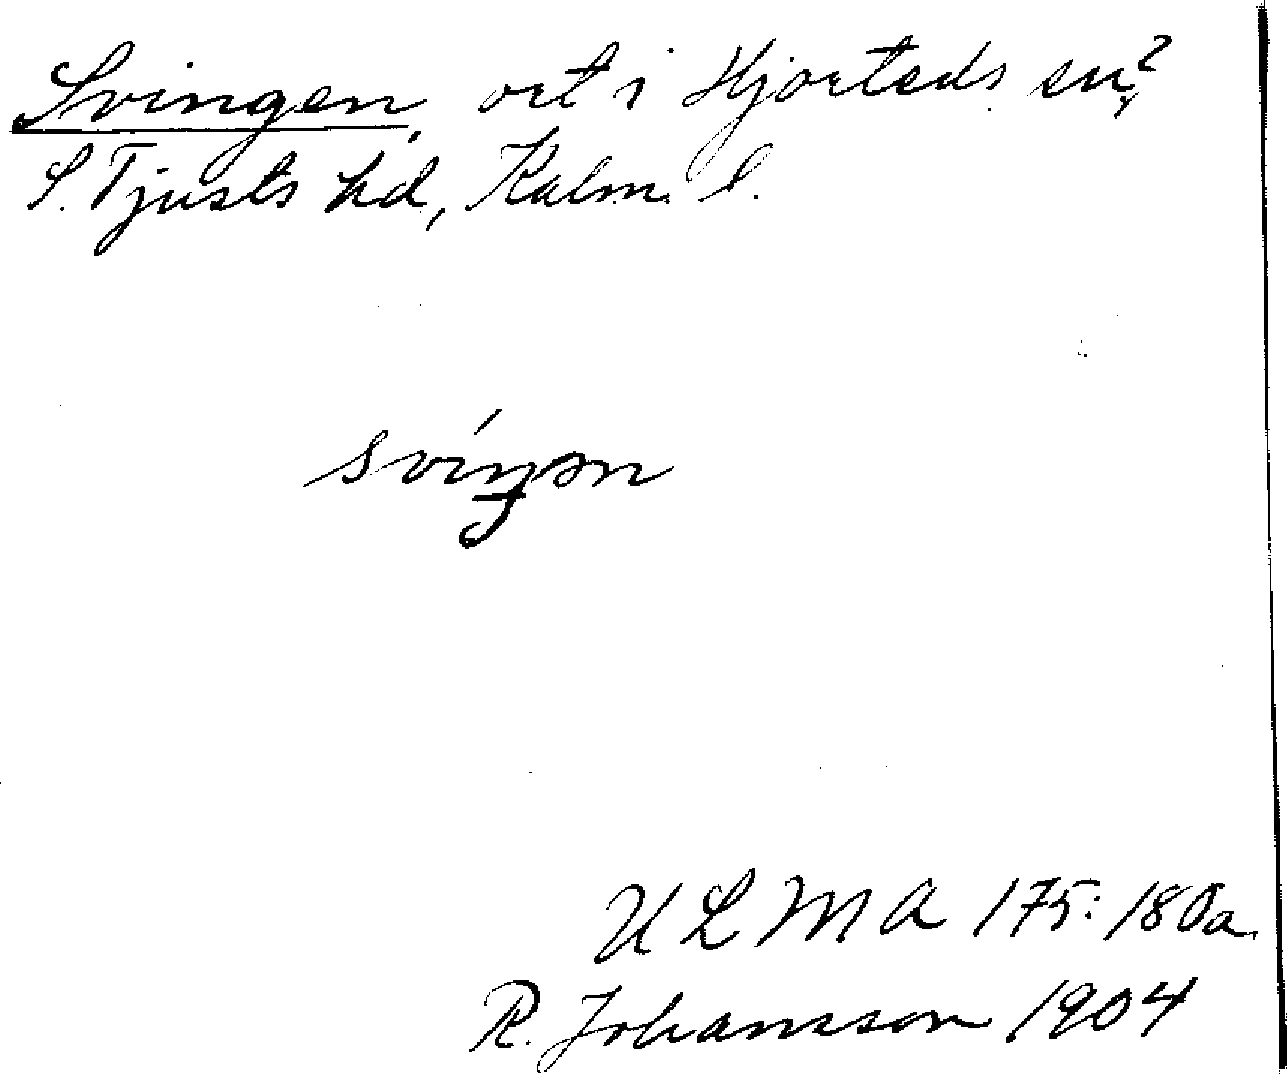 Svingen, ort i Hjorteds sn?,
S. Tjusts hd, Kalm. l.
svíŋən
ULMA 175:180a.
R. Johansson 1904